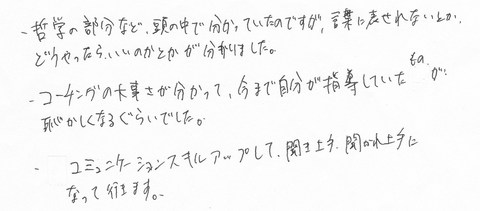 - 哲学の部分など、頭の中で分かっていたのですが、言葉に表せれないとか、
どうやったら、いいのかとかが分かりました。
- コーチングの大事さが分かって、今まで自分が指導していたものが
恥かしくなるぐらいでした。
- コミュニケーションスキルアップして、聞き上手、聞かれ上手に
なって行きます。